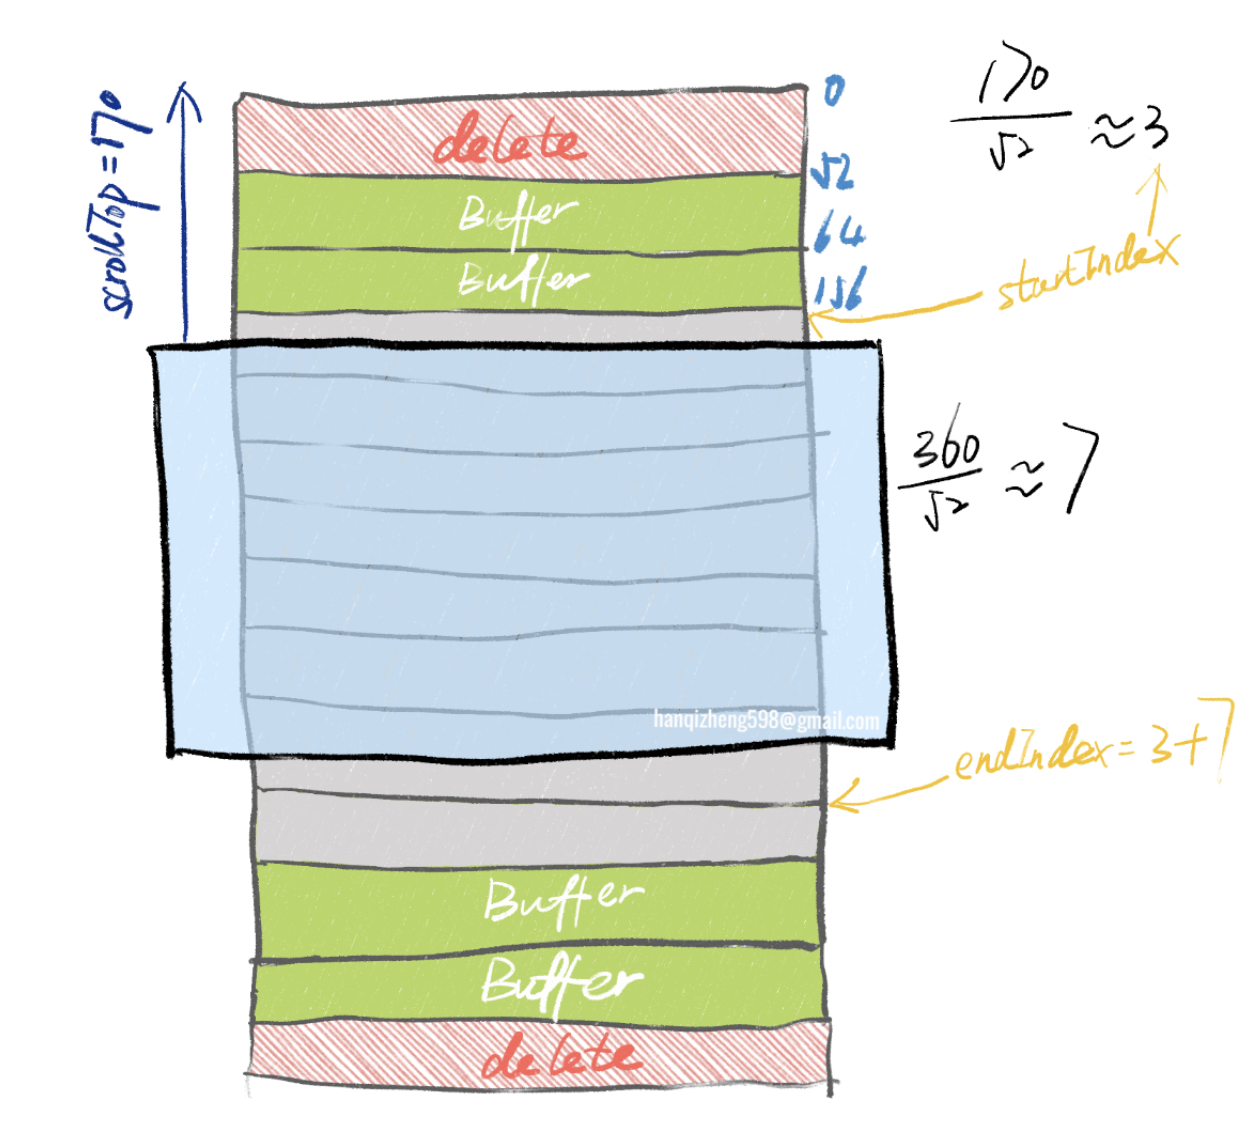 scrollTop = 170
0
delete
52
Buffer
64
Buffer
156
170
52
≈ 3
startIndex
360
52
≈ 7
hanqizheng598@gmail.com
endIndex = 3+7
Buffer
Buffer
delete